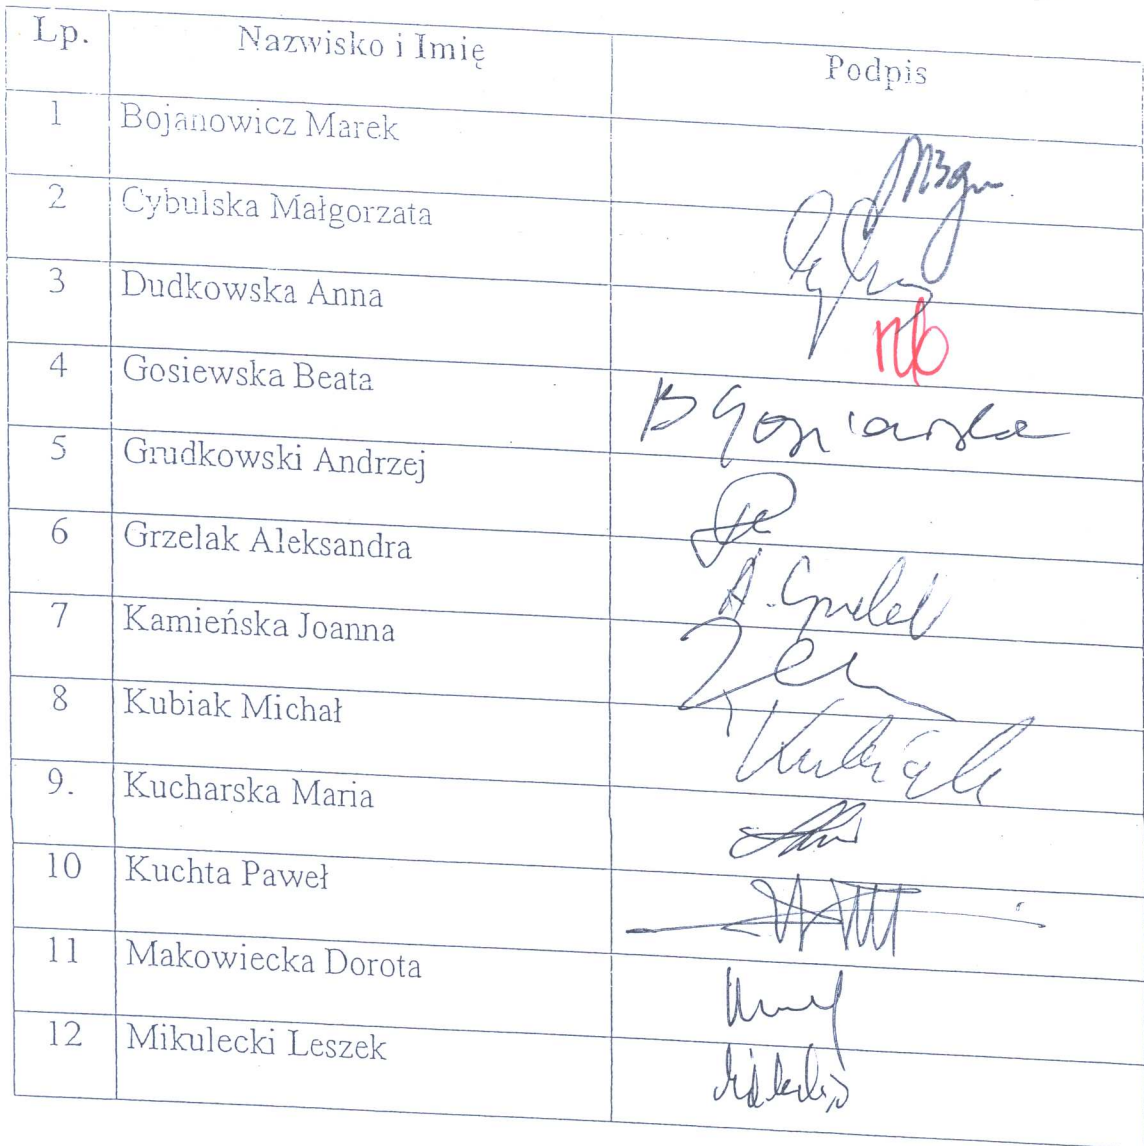 Lp. Nazwisko i Imię Podpis
1 Bojanowicz Marek
2 Cybulska Małgorzata
3 Dudkowska Anna nb
4 Gosiewska Beata B Gosiewska
5 Grudkowski Andrzej
6 Grzelak Aleksandra A. Grzelak
7 Kamieńska Joanna
8 Kubiak Michał Kubiak
9. Kucharska Maria
10 Kuchta Paweł
11 Makowiecka Dorota
12 Mikulecki Leszek